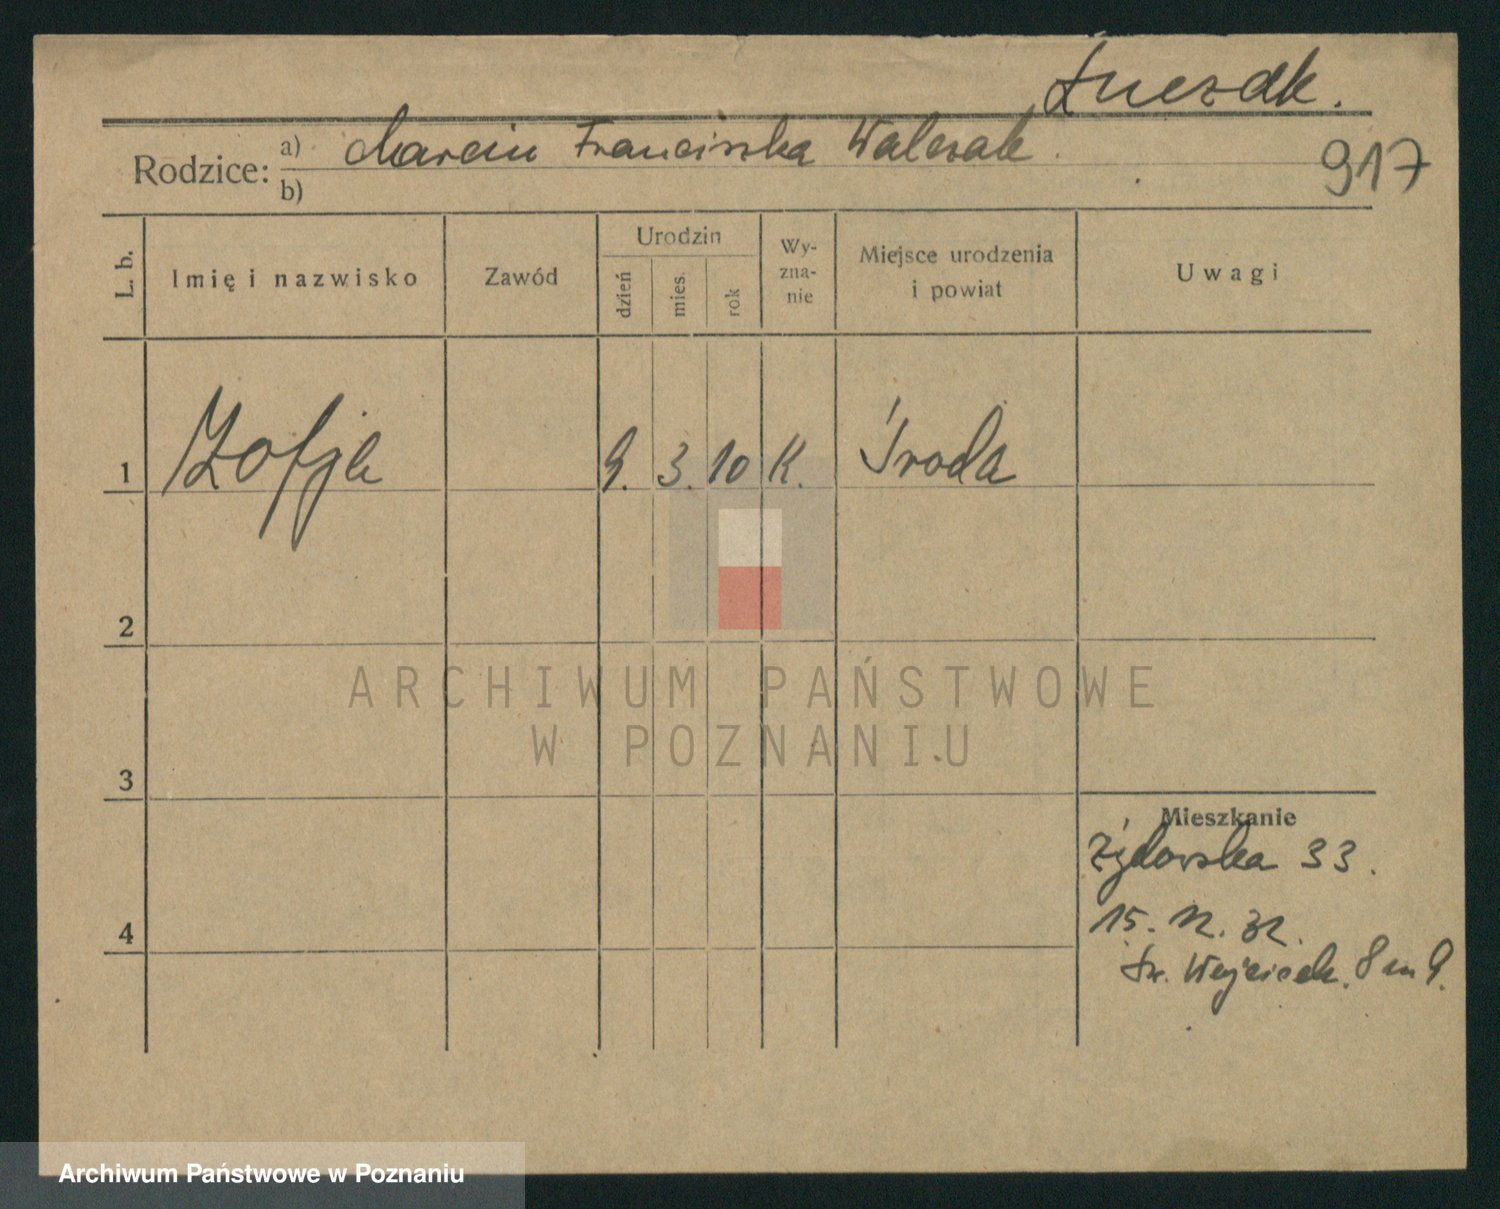 Łuczak.
Rodzice: a) Marcin Franciszka Walczak.
b)
917
L. b.
Imię i nazwisko
Zawód
Urodzin
dzień
mies.
rok
Wy-
zna-
nie
Miejsce urodzenia
i powiat
Uwagi
1 Zofja 9. 3. 10 K. Środa
2
3
4
Mieszkanie
Żydowska 33.
15. 12. 32.
św. Wojciech. 8 m 9.
ARCHIWUM PAŃSTWOWE
W POZNANIU
Archiwum Państwowe w Poznaniu